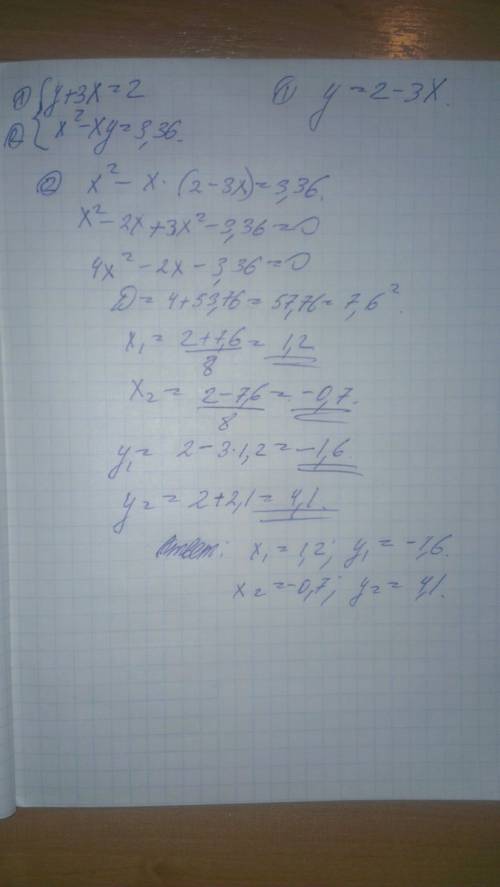 ① { y+3x=2 ① y=2-3x.
② { x²-xy=3,36.
② x²-x·(2-3x)=3,36.
x²-2x+3x²-3,36=0
4x²-2x-3,36=0
D=4+53,76=57,76=7,6².
x₁= (2+7,6)/8 = 1,2
x₂= (2-7,6)/8 = -0,7.
y₁= 2-3·1,2=-1,6
y₂= 2+2,1=4,1.
Ответ: x₁=1,2; y₁=-1,6.
x₂=-0,7; y₂=4,1.